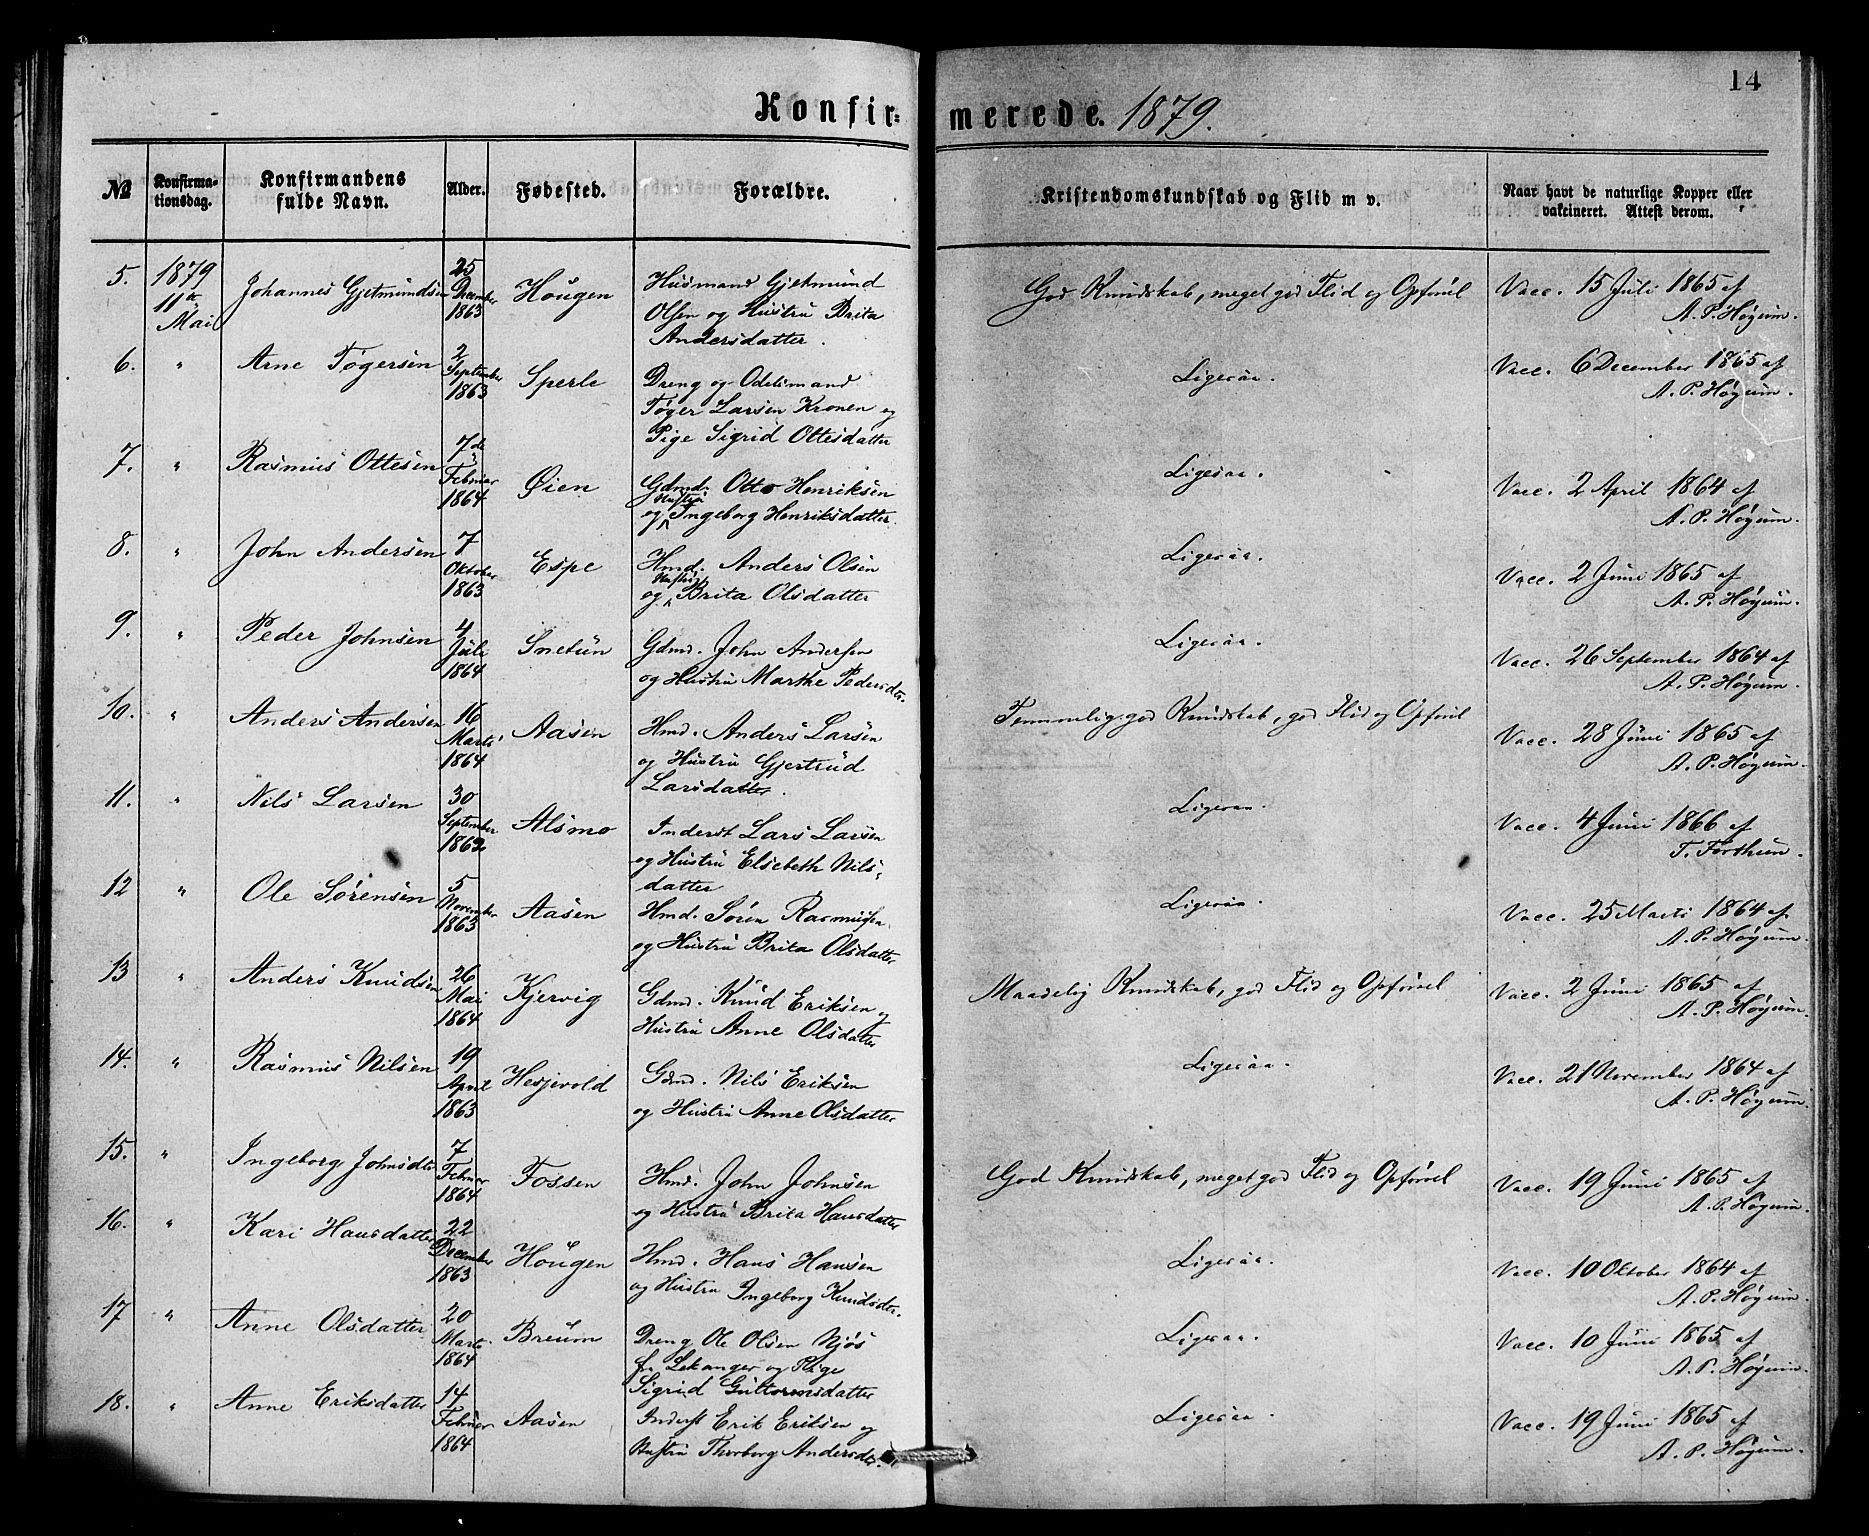 14
Konfir- merede. 1879.
№ Konfirmationsdag. Konfirmandens fulde Navn. Alder. Fødested. Forældre. Kristendomskundskab og Flid m v. Naar havt de naturlige Kopper eller vakcineret. Attest derom.
5. 1879 11te Mai Johannes Gjetmundsen 25 December 1863 Hougen Husmand Gjetmund Olsen og Hustru Brita Andersdatter. God Kundskab, meget god Flid og Opførsel Vacc. 15 Juli 1865 af A. P. Høyum.
6. " Arne Tøgersen 2 September 1863 Sperle Dreng og Odelsmand Tøger Larsen Kronen og Pige Sigrid Ottesdatter Ligesaa. Vacc. 6 December 1865 af A. P. Høyum.
7. " Rasmus Ottesen 7de Februar 1864 Øien Gdmd. Otto Henriksen og Hustru Ingeborg Henriksdatter. Ligesaa. Vacc. 2 April 1864 af A. P. Høyum.
8. " John Andersen 7 Oktober 1863 Espe Hmd. Anders Olsen og Hustru Brita Olsdatter Ligesaa. Vacc. 2 Juni 1865 af A. P. Høyum.
9. " Peder Johnsen 4 Juli 1864 Snetun Gdmd. John Andersen og Hustru Marthe Pedersdtr. Ligesaa. Vacc. 26 September 1864 af A. P. Høyum.
10. " Anders Andersen 16 Marts 1864 Aasen Hmd. Anders Larsen og Hustru Gjertrud Larsdatter. Temmelig god Kundskab, god Flid og Opførsel Vacc. 28 Juni 1865 af A. P. Høyum.
11. " Nils Larsen 30 September Alsmo Inderst Lars Larsen og Hustru Elsebeth Nilsdatter Ligesaa. Vacc. 4 Juni 1866 af T. Forthun.
12 " Ole Sørensen 5 November 1863 Aasen Hmd. Søren Rasmussen og Hustru Brita Olsdatter Ligesaa. Vacc. 25 Marts 1864 af A. P. Høyum.
13 " Anders Knudsen 26 Mai 1864 Kjervig Gdmd. Knud Eriksen og Hustru Anne Olsdatter Maadelig Kundskab, god Flid og Opførsel Vacc. 2 Juni 1865 af A. P. Høyum.
14. " Rasmus Nilsen 19 April 1863 Hesjevold Gdmd. Nils Eriksen og Hustru Anne Olsdatter Ligesaa. Vacc. 21 November 1864 af A. P. Høyum.
15. " Ingeborg Johnsdtr 7 Februar 1864 Fossen Hmd. John Johnsen og Hustru Brita Hansdatter God Kundskab, meget god Flid og Opførsel Vacc. 19 Juni 1865 af A. P. Høyum.
16. " Kari Hansdatter 22 December 1863 Hougen Hmd. Hans Hansen og Hustru Ingeborg Knudsdtr. Ligesaa. Vacc. 10 Oktober 1864 af A. P. Høyum.
17 " Anne Olsdatter 20 Marts 1864 Breum Dreng Ole Olsen Njøs fr. Lekanger og Pige Sigrid Guttormsdatter Ligesaa. Vacc. 10 Juni 1865 af A. P. Høyum.
18. " Anne Eriksdatter 14 Februar 1864 Aasen Inderst Erik Eriksen og Hustru Thorborg Andersdtr. Ligesaa. Vacc. 19 Juni 1865 af A. P. Høyum.